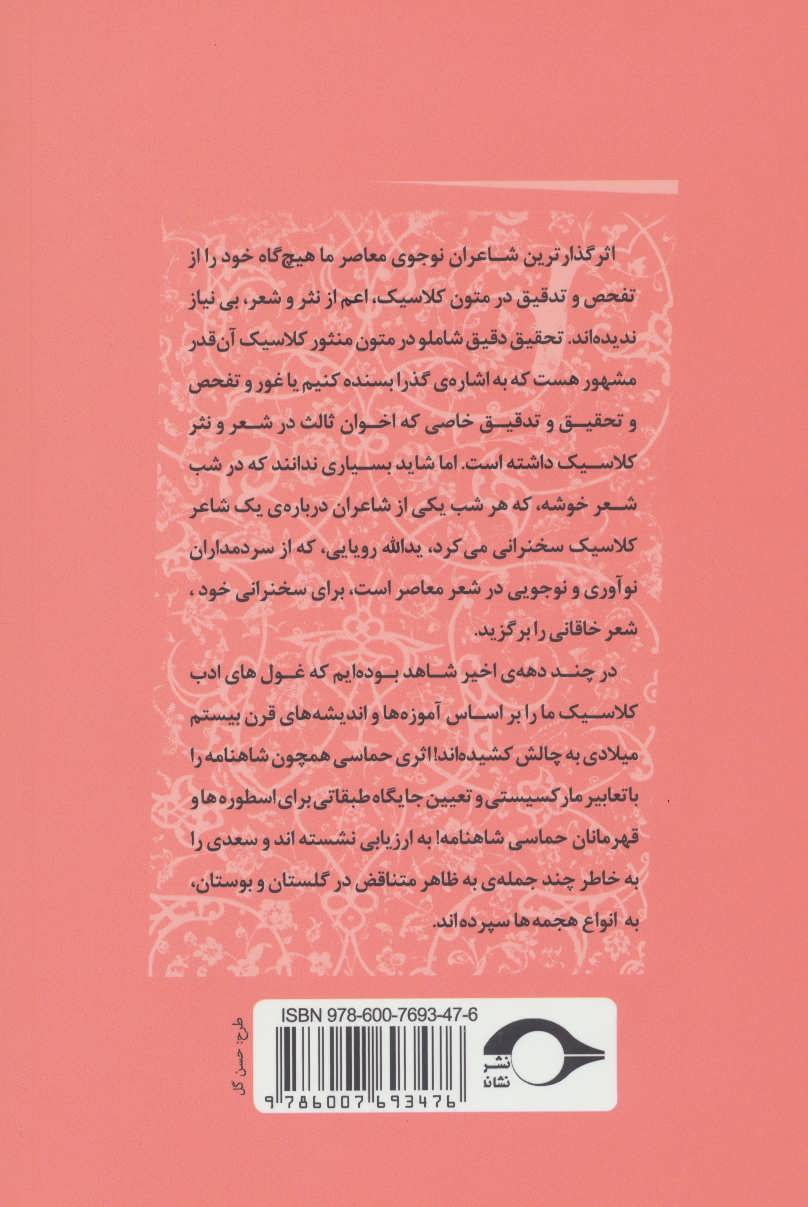 اثرگذارترین شاعران نوجوی معاصر ما هیچ‌گاه خود را از
تفحص و تدقیق در متون کلاسیک، اعم از نثر و شعر، بی نیاز
ندیده‌اند. تحقیق دقیق شاملو در متون منثور کلاسیک آن‌قدر
مشهور هست که به اشاره‌ی گذرا بسنده کنیم یا غور و تفحص
و تحقیق و تدقیق خاصی که اخوان ثالث در شعر و نثر
کلاسیک داشته است. اما شاید بسیاری ندانند که در شب
شعر خوشه، که هر شب یکی از شاعران درباره‌ی یک شاعر
کلاسیک سخنرانی می‌کرد، یدالله رویایی، که از سردمداران
نوآوری و نوجویی در شعر معاصر است، برای سخنرانی خود ،
شعر خاقانی را برگزید.
در چند دهه‌ی اخیر شاهد بوده‌ایم که غول های ادب
کلاسیک ما را بر اساس آموزه‌ها و اندیشه‌های قرن بیستم
میلادی به چالش کشیده‌اند! اثری حماسی همچون شاهنامه را
با تعابیر مارکسیستی و تعیین جایگاه طبقاتی برای اسطوره‌ها و
قهرمانان حماسی شاهنامه! به ارزیابی نشسته اند و سعدی را
به خاطر چند جمله‌ی به ظاهر متناقض در گلستان و بوستان،
به انواع هجمه‌ها سپرده‌اند.
طرح: حسن گل
ISBN 978-600-7693-47-6
9 786007 693476
نشر
نشانه